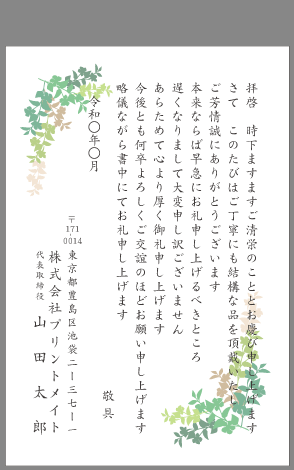 拝啓　時下ますますご清栄のこととお慶び申し上げます
さて　このたびはご丁寧にも結構な品を頂戴いたし
ご芳情誠にありがとうございます
本来ならば早急にお礼申し上げるべきところ
遅くなりまして大変申し訳ございません
あらためて心より厚く御礼申し上げます
今後とも何卒よろしくご交誼のほどお願い申し上げます
略儀ながら書中にてお礼申し上げます
敬具
令和〇年〇月
〒171
0014
東京都豊島区池袋二ー三七ー一
株式会社プリントメイト
代表取締役　山田太郎